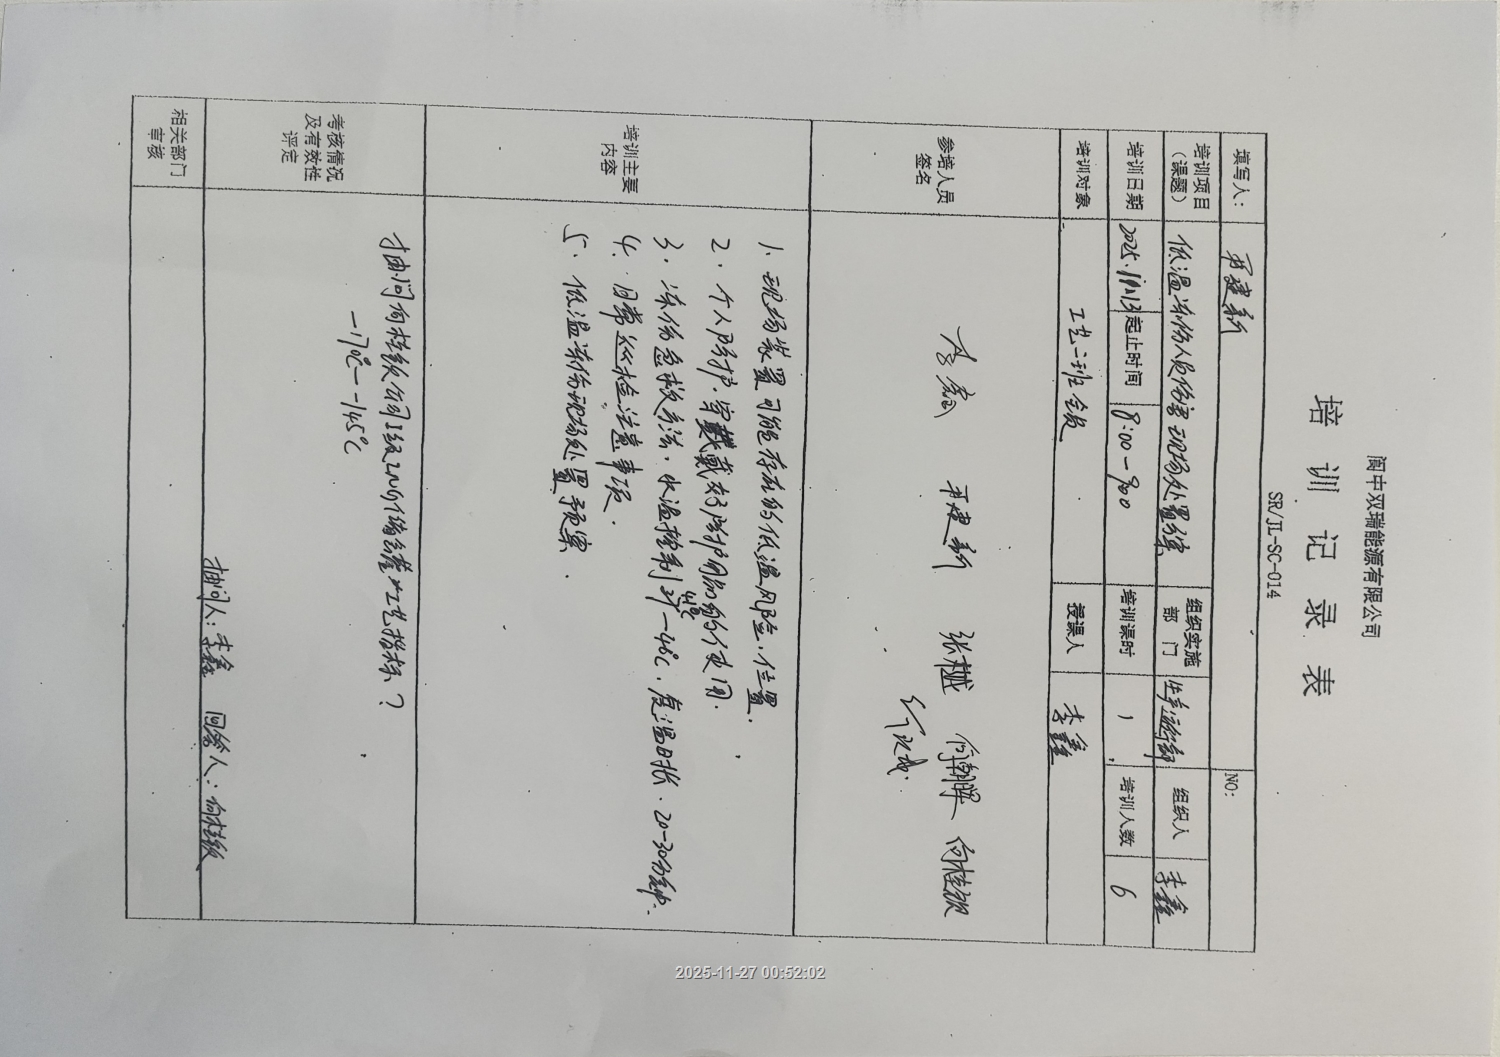 阆中双瑞能源有限公司
培训记录表
SR/JL-SC-014
填写人： 建新 NO:
培训项目（课题） 低温冻伤人员伤害现场处置 组织实施部门 生产运行部 组织人 李鑫
培训日期 2025.11月13 起止时间 8:00-9:00 培训课时 1 培训人数 6
培训对象 工艺一班全员 授课人 李鑫
参培人员签名 李鑫 建新 张樾 何朝晖 向桂银
培训主要内容
1、现场装置可能存在的低温风险、位置.
2、个人防护、穿戴戴好防护用品的使用.
3、冻伤急救方法、水温控制 -42℃、复温时长、20-30分钟.
4、日常巡检注意事项.
5、低温冻伤现场处置预案.
考核情况及有效性评定
抽问向桂银公司1级LNG储罐工艺指标？
-170℃--145℃
抽问人：李鑫 回答人：向桂银
相关部门审核
2025-11-27 00:52:02